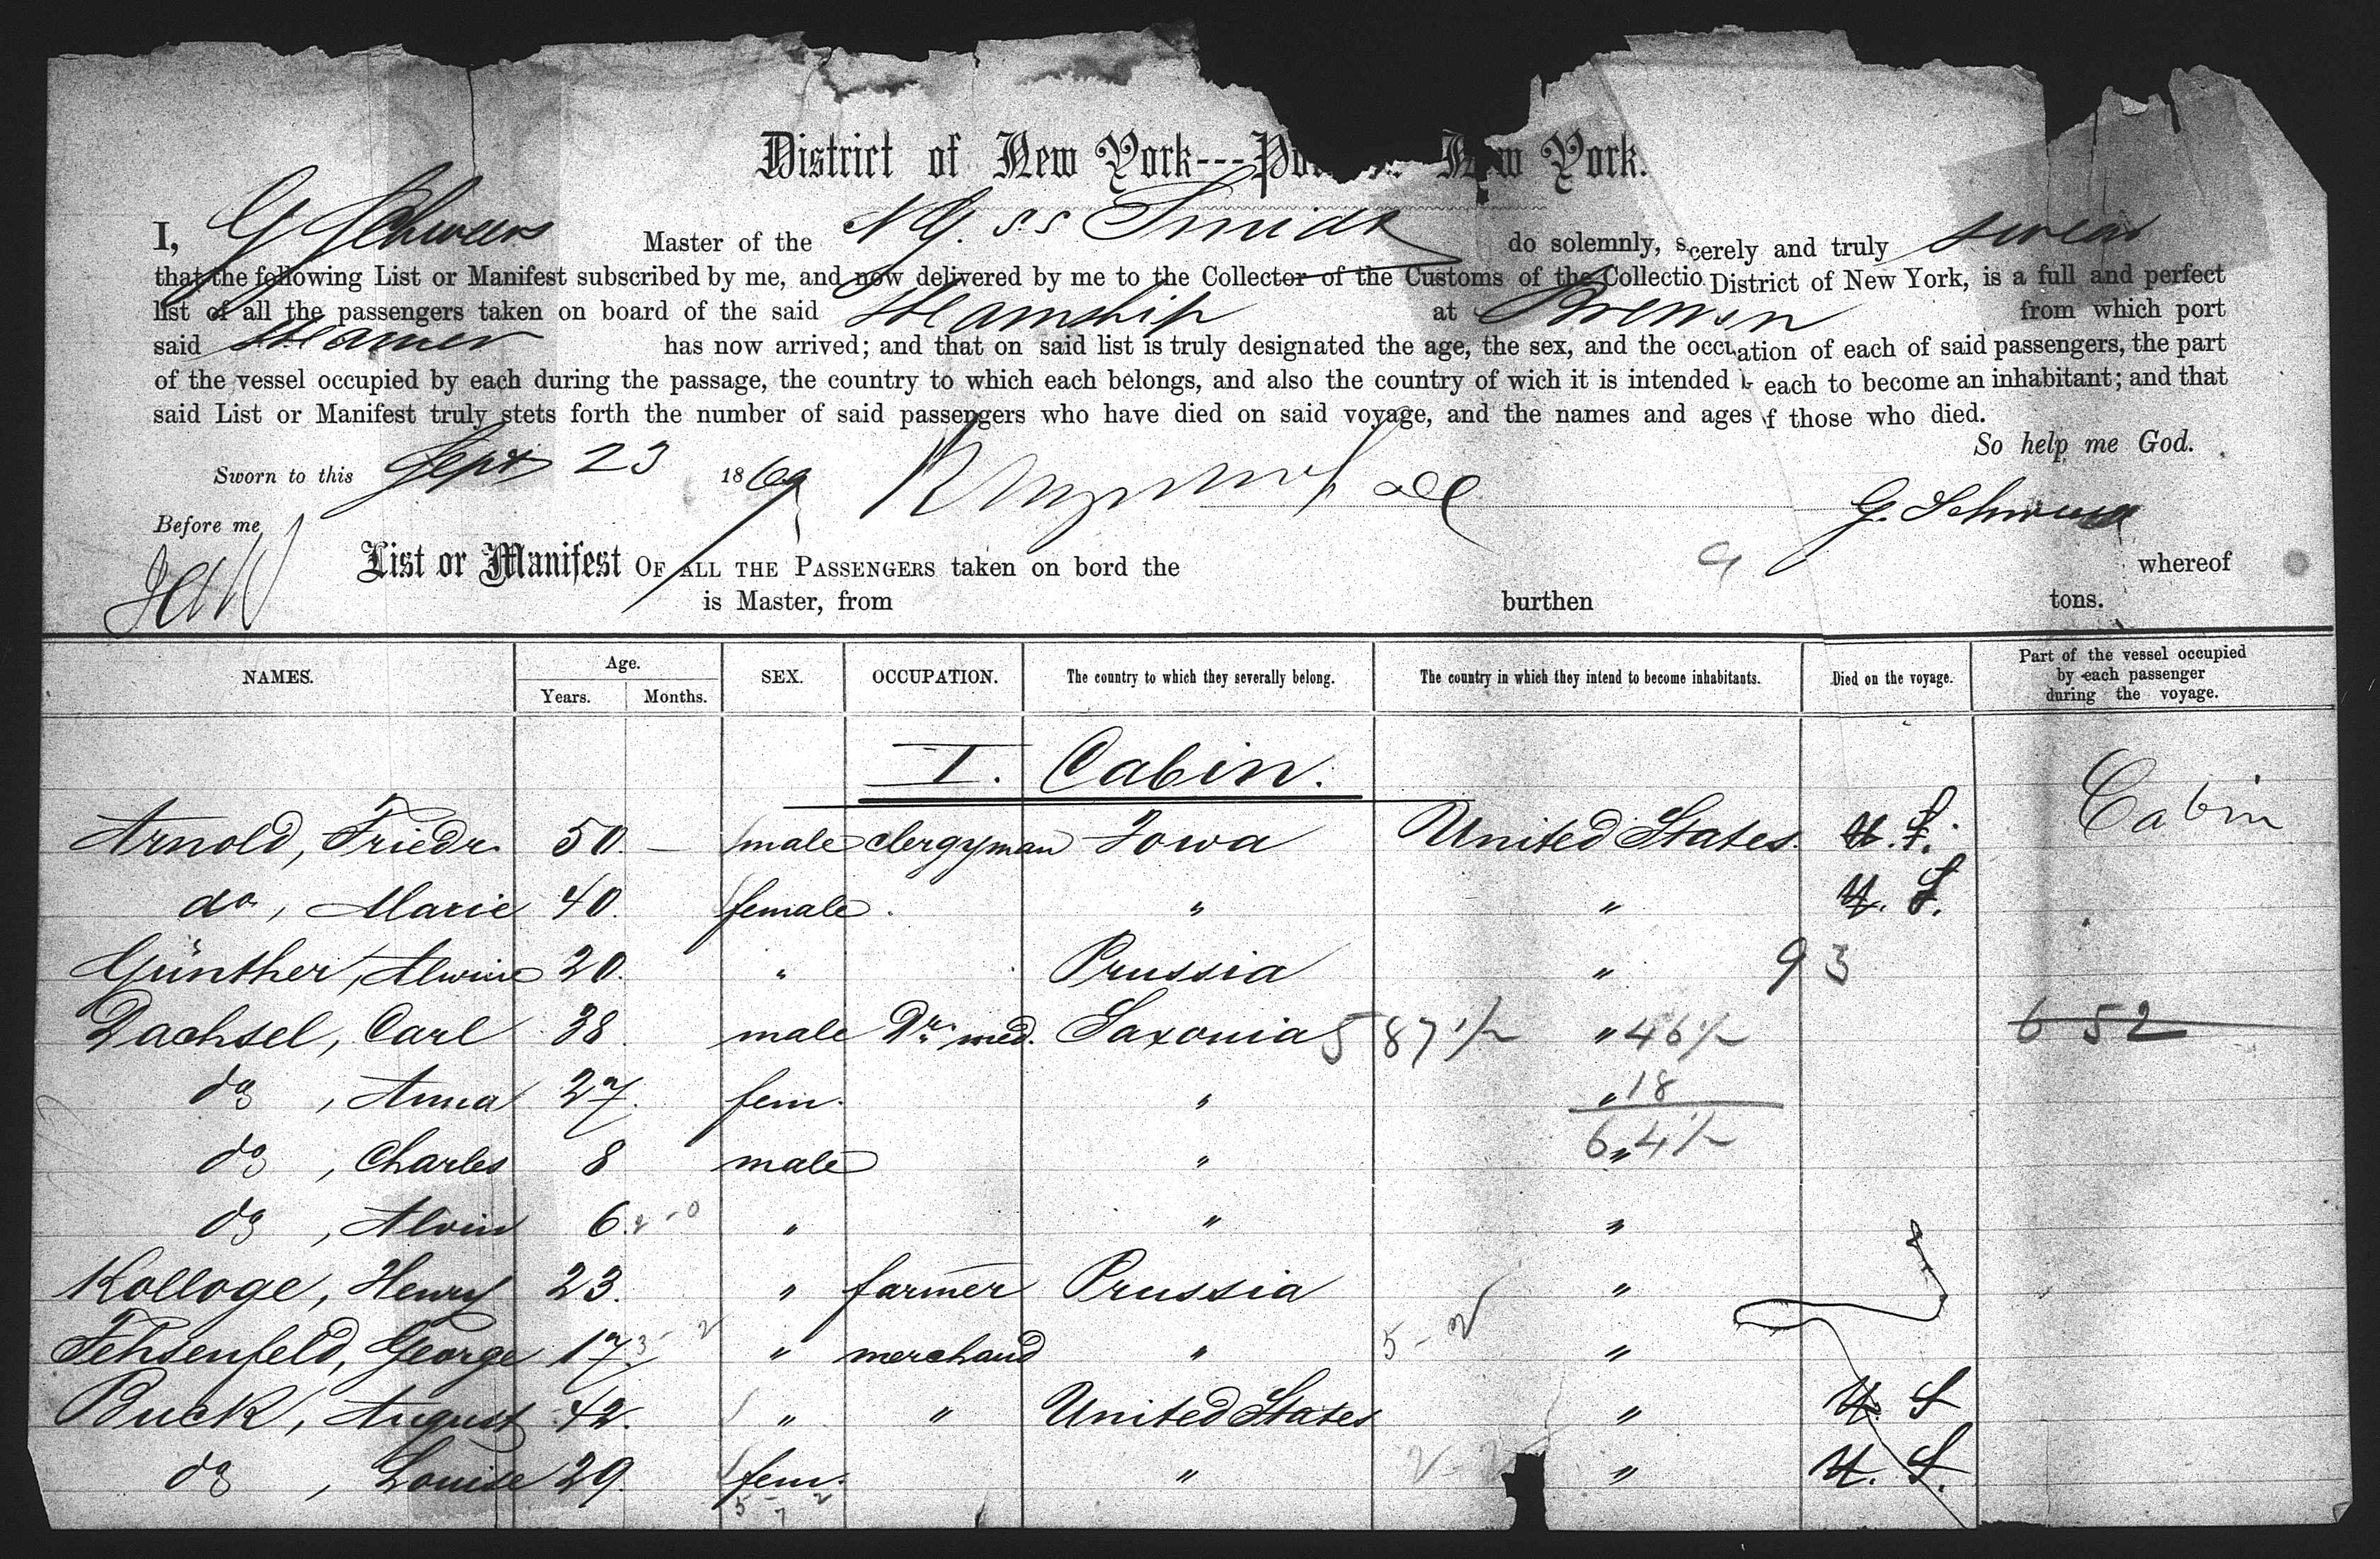 District of New York---Po New York.
I, G Schwers Master of the N G. SS Smidt do solemnly, s cerely and truly swear
that the following List or Manifest subscribed by me, and now delivered by me to the Collector of the Customs of the Collectio District of New York, is a full and perfect
list of all the passengers taken on board of the said Steamship at Bremen from which port
said Steamer has now arrived; and that on said list is truly designated the age, the sex, and the occu ation of each of said passengers, the part
of the vessel occupied by each during the passage, the country to which each belongs, and also the country of wich it is intended each to become an inhabitant; and that
said List or Manifest truly stets forth the number of said passengers who have died on said voyage, and the names and ages f those who died.
So help me God.
Sworn to this Sept 23 1869
G. Schwers
Before me
List or Manifest OF ALL THE PASSENGERS taken on bord the whereof
is Master, from burthen tons.
NAMES. Age. Years. Months. SEX. OCCUPATION. The country to which they severally belong. The country in which they intend to become inhabitants. Died on the voyage. Part of the vessel occupied by each passenger during the voyage.
I. Cabin.
Arnold, Friedr. 50. — male clergyman Iowa United States. U. S. Cabin
do, Marie 40. female " " U. S.
Günther, Alwine 20. " Prussia " 93
Dachsel, Carl 38 male Dr. med. Saxonia 5 87 1/2 " 46 1/2 6 52
do, Anna 27. fem. " " 18
do, Charles 8 male " " 64 1/2
do, Alvin 6. 2-0 " " "
Kolloge, Henry 23. " farmer Prussia "
Fehsenfeld, George 17. 3-2 " merchand " 5-2 "
Buck, August 42. " " United States " U. S
do, Louise 29. fem. " 2-2 " U. S.
5-7 2